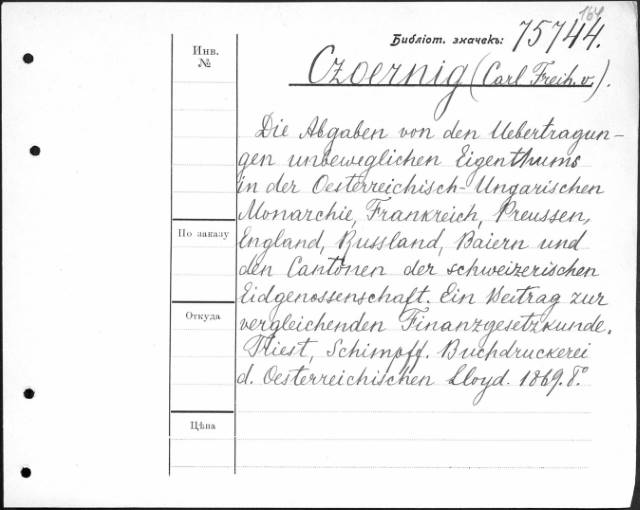 164
Библiот. значекъ: 75744.
Инв.
№
Czoernig (Carl Freih. v.).
Die Abgaben von den Uebertragun-
gen unbeweglichen Eigenthums
in der Oesterreichisch-Ungarischen
Monarchie, Frankreich, Preussen,
По заказу
England, Russland, Baiern und
den Cantonen der schweizerischen
Eidgenossenschaft. Ein Beitrag zur
Откуда
vergleichenden Finanzgesetzkunde.
Triest, Schimpff. Buchdruckerei
d. Oesterreichischen Lloyd. 1869. 8.°
Цѣна